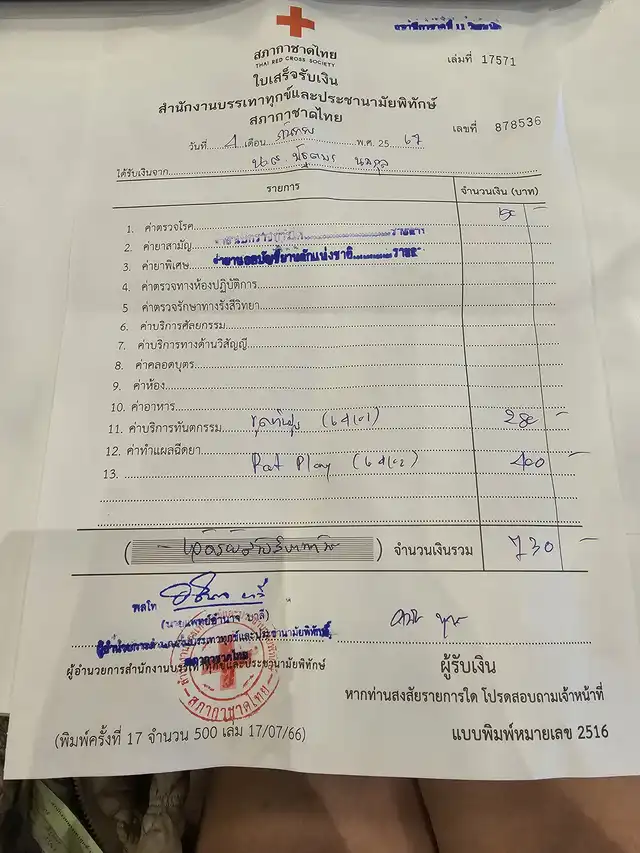 สภากาชาดไทย
THAI RED CROSS SOCIETY
เล่มที่ 17571
ใบเสร็จรับเงิน
สำนักงานบรรเทาทุกข์และประชานามัยพิทักษ์
สภากาชาดไทย
เลขที่ 878536
วันที่ 4 เดือน กันยายน พ.ศ. 25 67
ได้รับเงินจาก
รายการ จำนวนเงิน (บาท)
1. ค่าตรวจโรค 50 -
2. ค่ายาสามัญ
3. ค่ายาพิเศษ ค่ายานอกบัญชียาหลักแห่งชาติ
4. ค่าตรวจทางห้องปฏิบัติการ
5 ค่าตรวจรักษาทางรังสีวิทยา
6. ค่าบริการศัลยกรรม
7. ค่าบริการทางด้านวิสัญญี
8. ค่าคลอดบุตร
9. ค่าห้อง
10. ค่าอาหาร
11. ค่าบริการทันตกรรม 280 -
12. ค่าทำแผลฉีดยา
13. 400 -
จำนวนเงินรวม 730 -
พลโท
(นายแพทย์อำนาจ บาลี)
ผู้อำนวยการสำนักงานบรรเทาทุกข์และประชานามัยพิทักษ์
สภากาชาดไทย
ผู้อำนวยการสำนักงานบรรเทาทุกข์และประชานามัยพิทักษ์
สภากาชาดไทย
ผู้รับเงิน
หากท่านสงสัยรายการใด โปรดสอบถามเจ้าหน้าที่
(พิมพ์ครั้งที่ 17 จำนวน 500 เล่ม 17/07/66)
แบบพิมพ์หมายเลข 2516